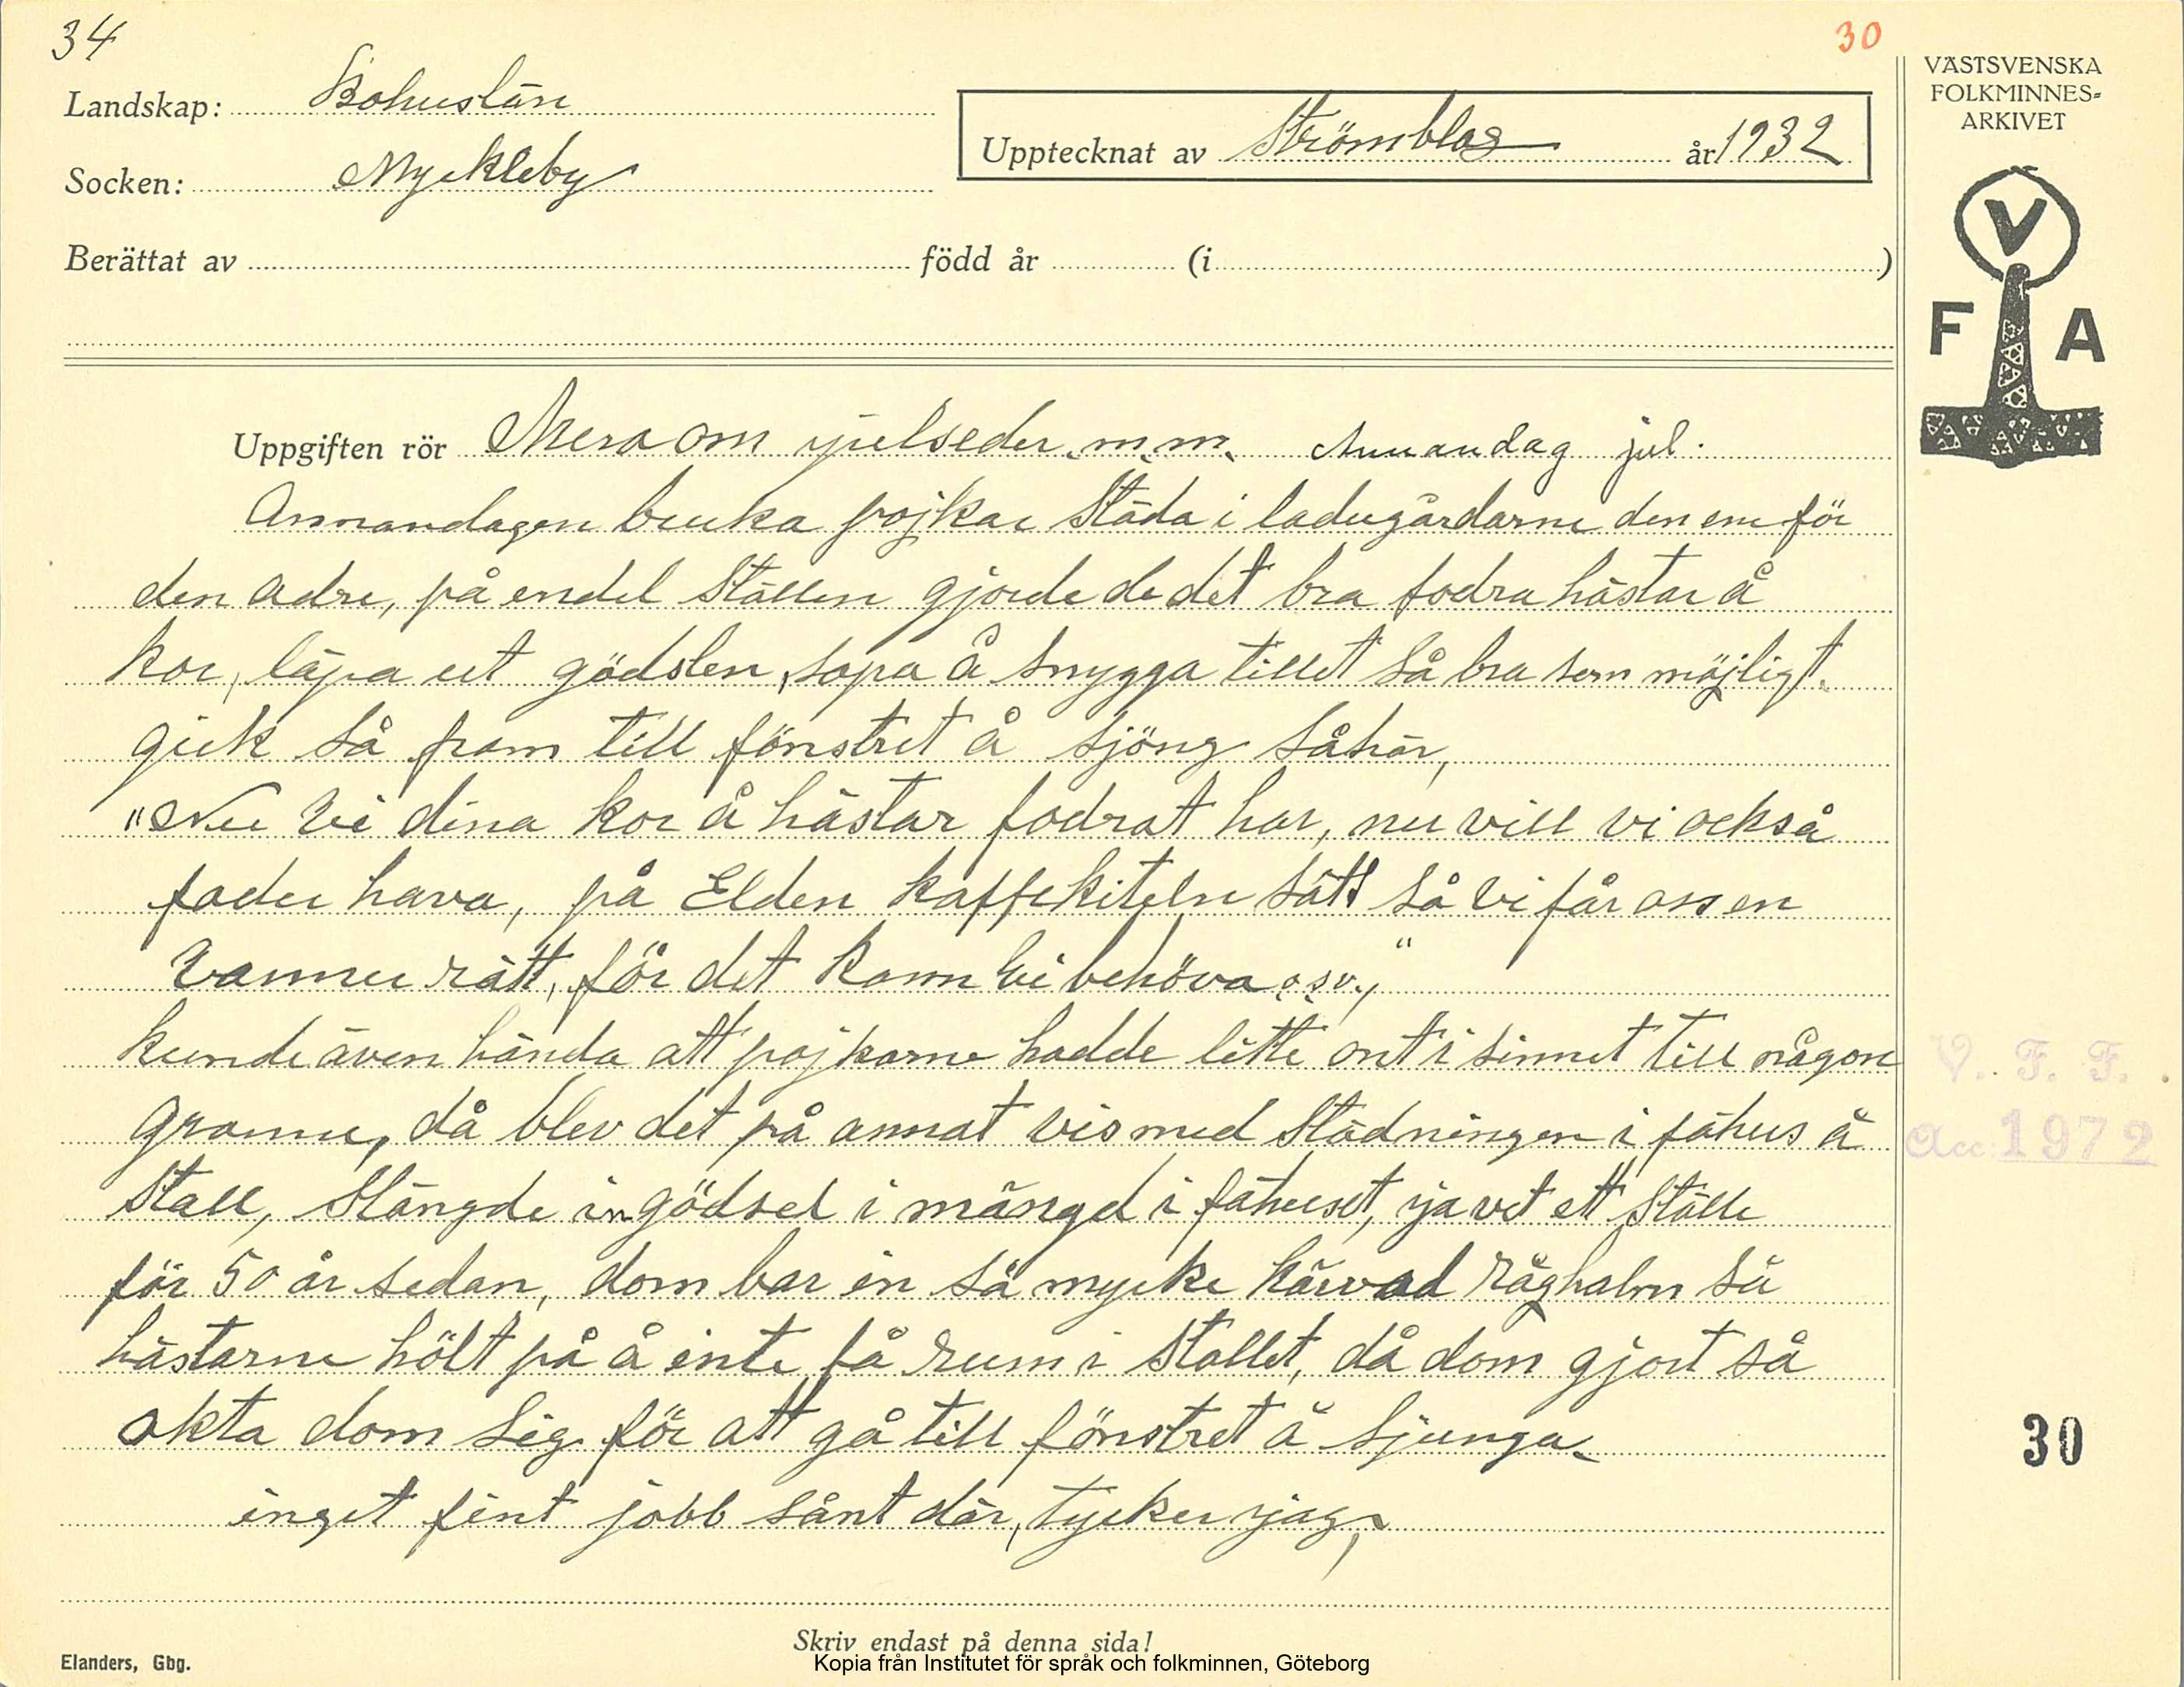 34
30
Landskap: Bohuslän
Socken: Myckleby
Upptecknat av Strömblas år 1932
Berättat av född år (i )
VÄSTSVENSKA
FOLKMINNES-
ARKIVET
V
F A
Uppgiften rör Mera om julseder m.m. Annandag jul.
Annandagen bruka pojkar städa i ladugårdarne den ene för
den adre, på endel ställen gjorde de det bra fodra hästar å
kor, läpa ut gödslen, sopa å snygga tillet så bra som möjligt.
gick så fram till fönstret å sjöng såhär,
"Nu vi dina kor å hästar fodrat har, nu vill vi också
foder hava, på Elden kaffekiteln sätt så vi får oss en
varmer rätt, för det kann vi behöva o.s.v.,"
kunde även hända att pojkarne hadde litte ont i sinnet till någon
granne, då blev det på annat vis med städningen i fähus å
stall, slängde in gödsel i mängd i fähuset, ja vet ett ställe
för 50 år sedan, dom bar in så mycke kärvad råghalm så
hästarne hölt på å inte få rum i stallet, då dom gjort så
akta dom sig för att gå till fönstret å sjunga.
inget fint jobb sånt där, tycker jag,
V. F. F.
Acc. 1972
30
Skriv endast på denna sida!
Elanders, Gbg.
Kopia från Institutet för språk och folkminnen, Göteborg